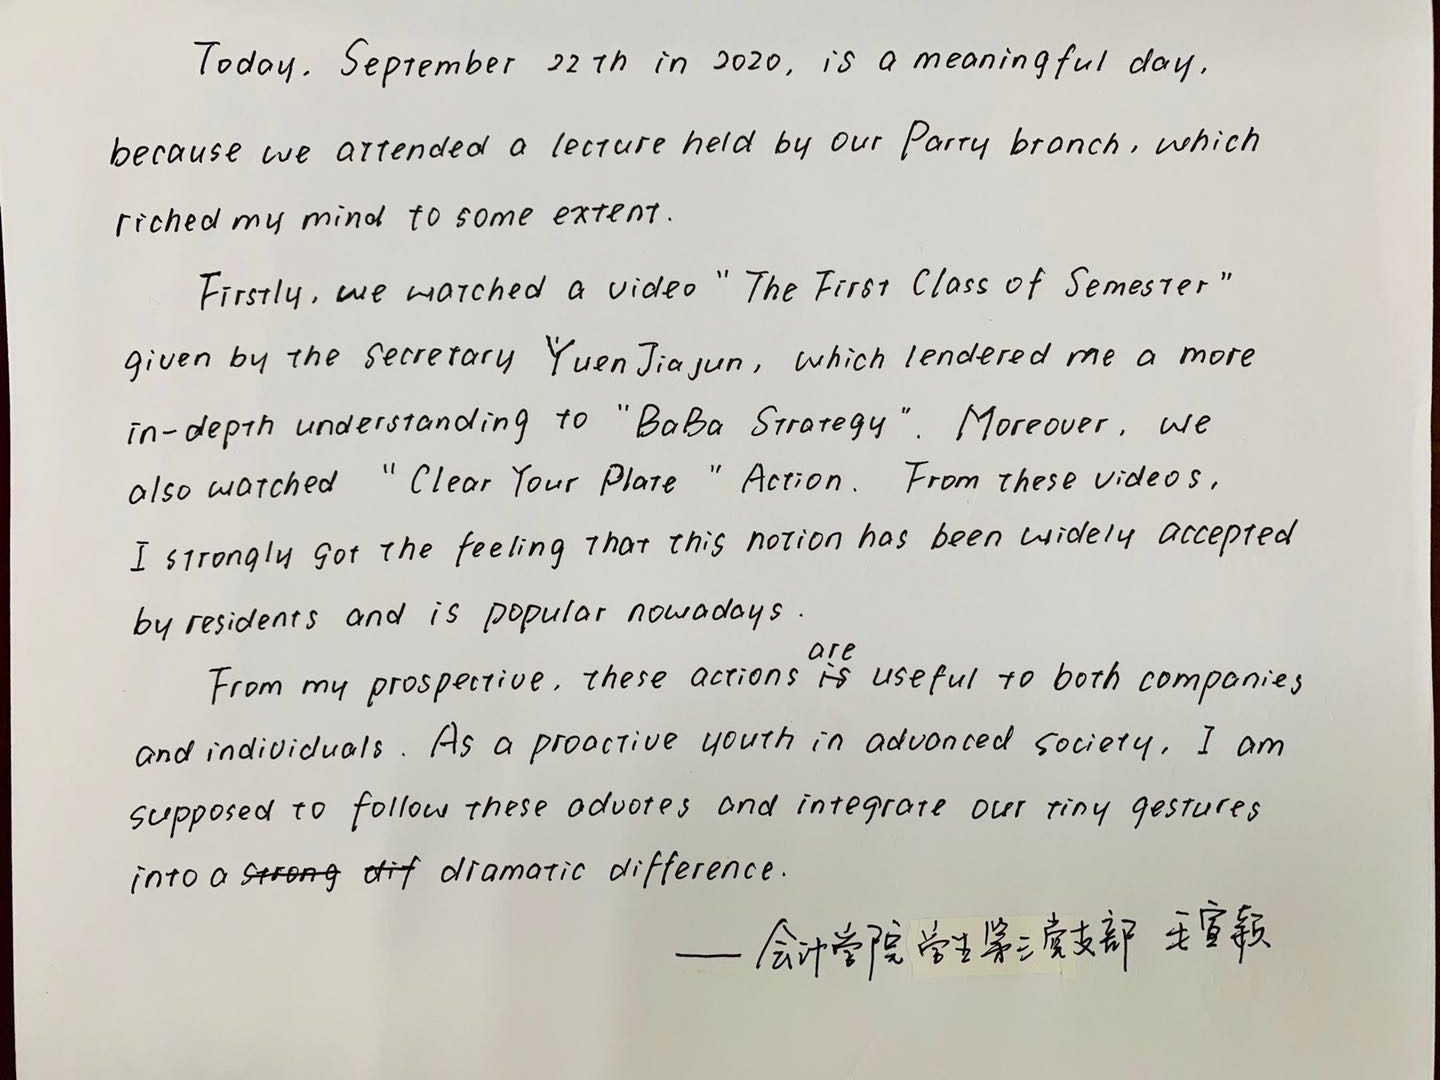 Today, September 22th in 2020, is a meaningful day,
because we attended a lecture held by our Party branch, which
riched my mind to some extent.
Firstly, we watched a video "The First Class of Semester"
given by the secretary Yuen Jiajun, which lendered me a more
in-depth understanding to "BaBa Strategy". Moreover, we
also watched "Clear Your Plate" Action. From these videos,
I strongly got the feeling that this notion has been widely accepted
by residents and is popular nowadays.
are
From my prospective, these actions is useful to both companies
and individuals. As a proactive youth in advanced society, I am
supposed to follow these advotes and integrate our tiny gestures
into a strong dif dramatic difference.
——会计学院学生第三党支部 王宣颖